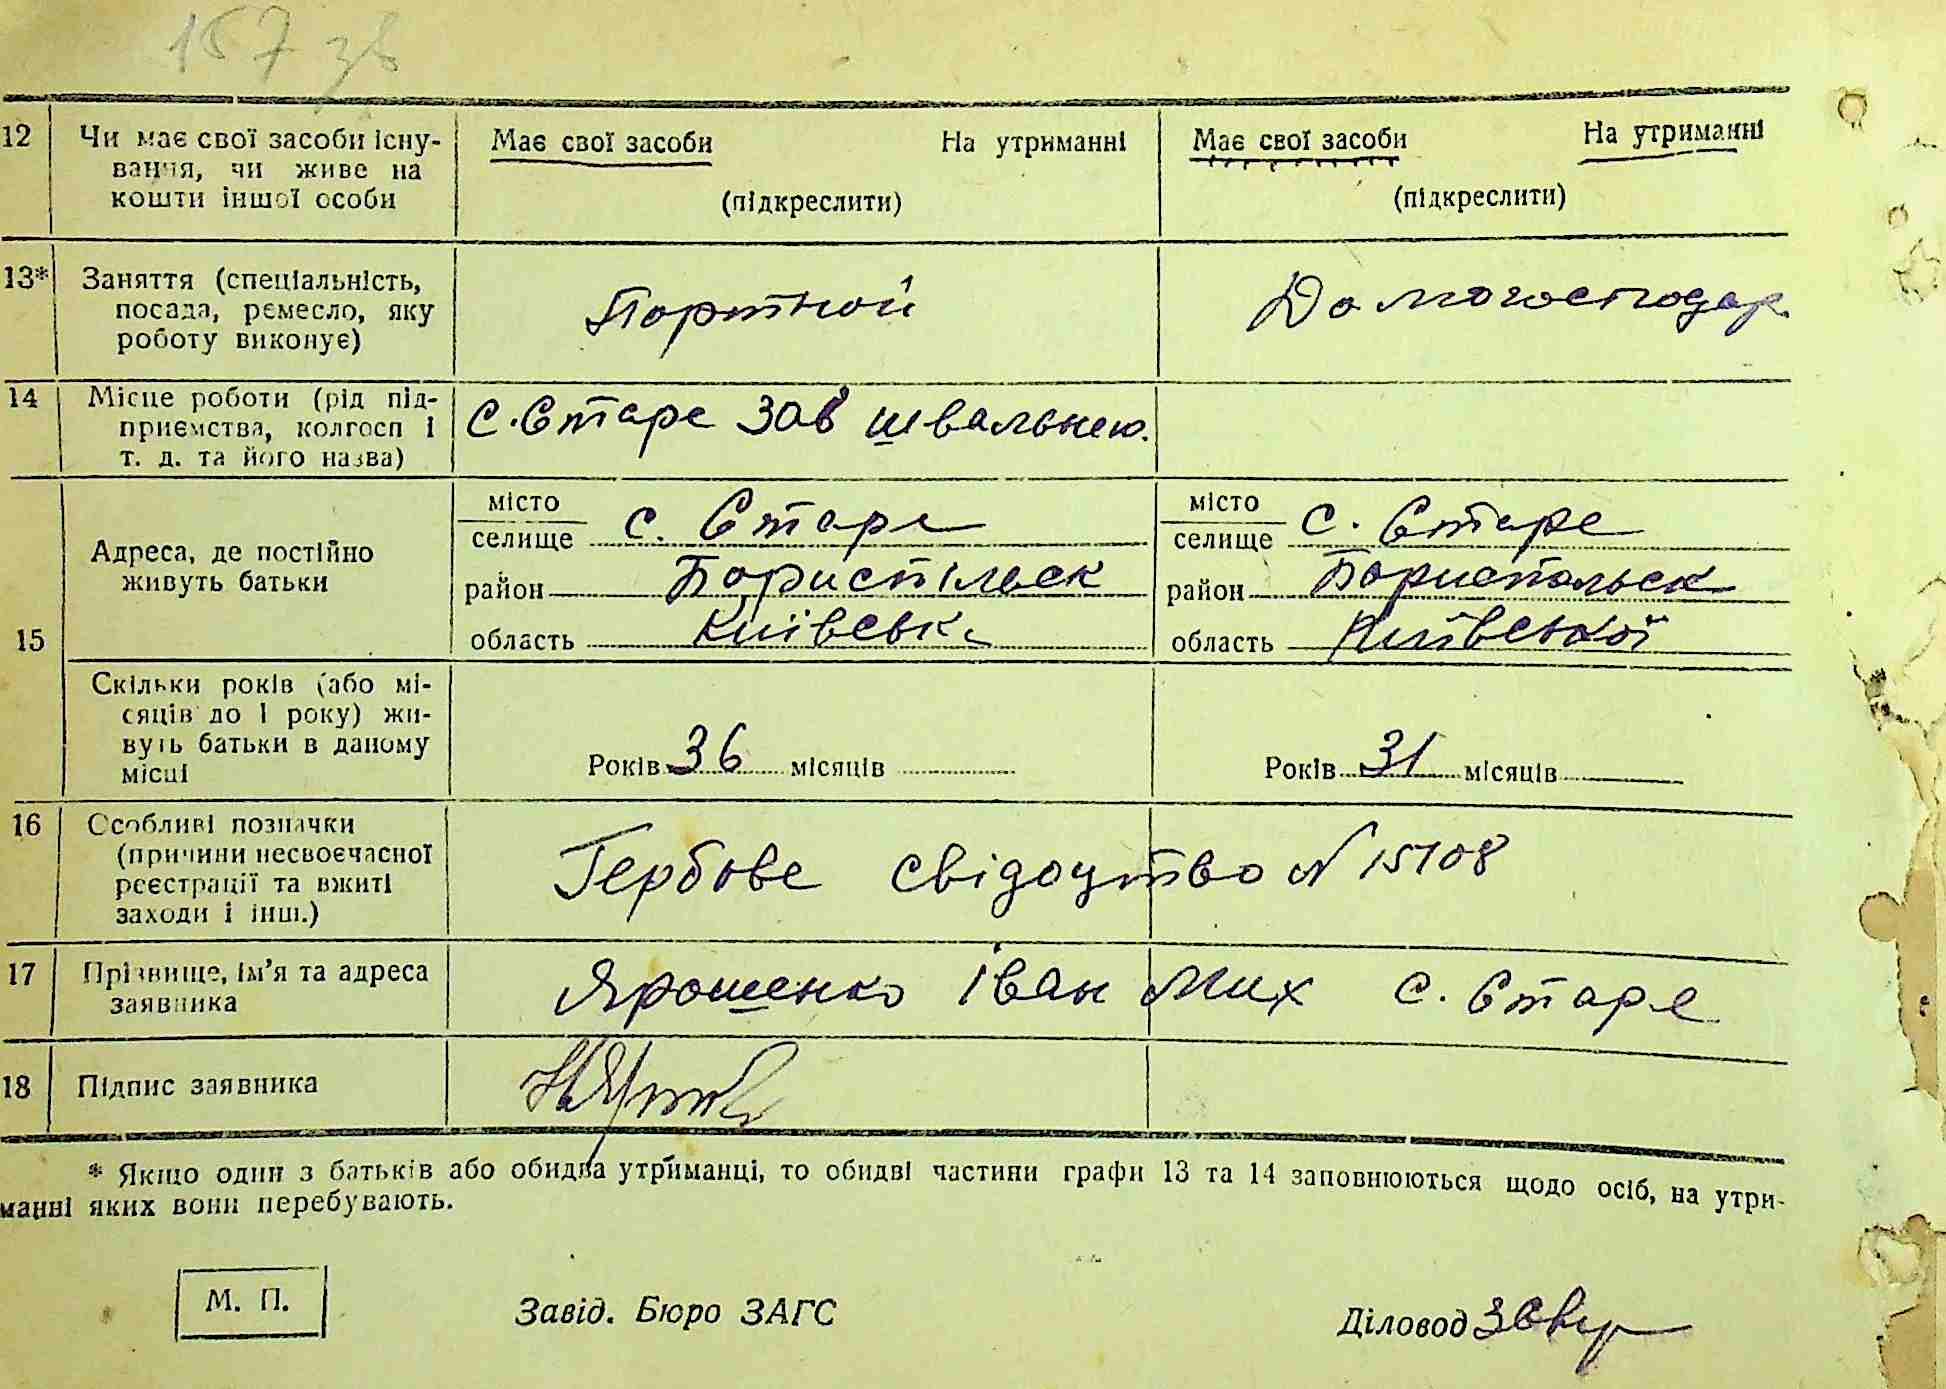 157 зв
12 Чи має свої засоби існу- Має свої засоби На утриманні Має свої засоби На утриманні
вання, чи живе на
кошти іншої особи (підкреслити) (підкреслити)
13* Заняття (спеціальність,
посада, ремесло, яку Портной Домогосподар.
роботу виконує)
14 Місце роботи (рід під-
приємства, колгосп і С. Старе зав швальнею.
т. д. та його назва)
15 Адреса, де постійно
живуть батьки
місто
селище с. Старе
район Бориспільськ
область Київська
місто
селище с. Старе
район Бориспольськ
область Київської
Скільки років (або мі-
сяців до 1 року) жи-
вуть батьки в даному
місці
Років 36 місяців Років 31 місяців
16 Особливі позначки
(причини несвоєчасної
реєстрації та вжиті
заходи і інш.)
Гербове свідоцтво N 15108
17 Прізвище, ім'я та адреса
заявника
Ярошенко Іван Мих с. Старе
18 Підпис заявника
* Якщо один з батьків або обидва утриманці, то обидві частини графи 13 та 14 заповнюються щодо осіб, на утри-
манні яких вони перебувають.
М. П. Завід. Бюро ЗАГС Діловод